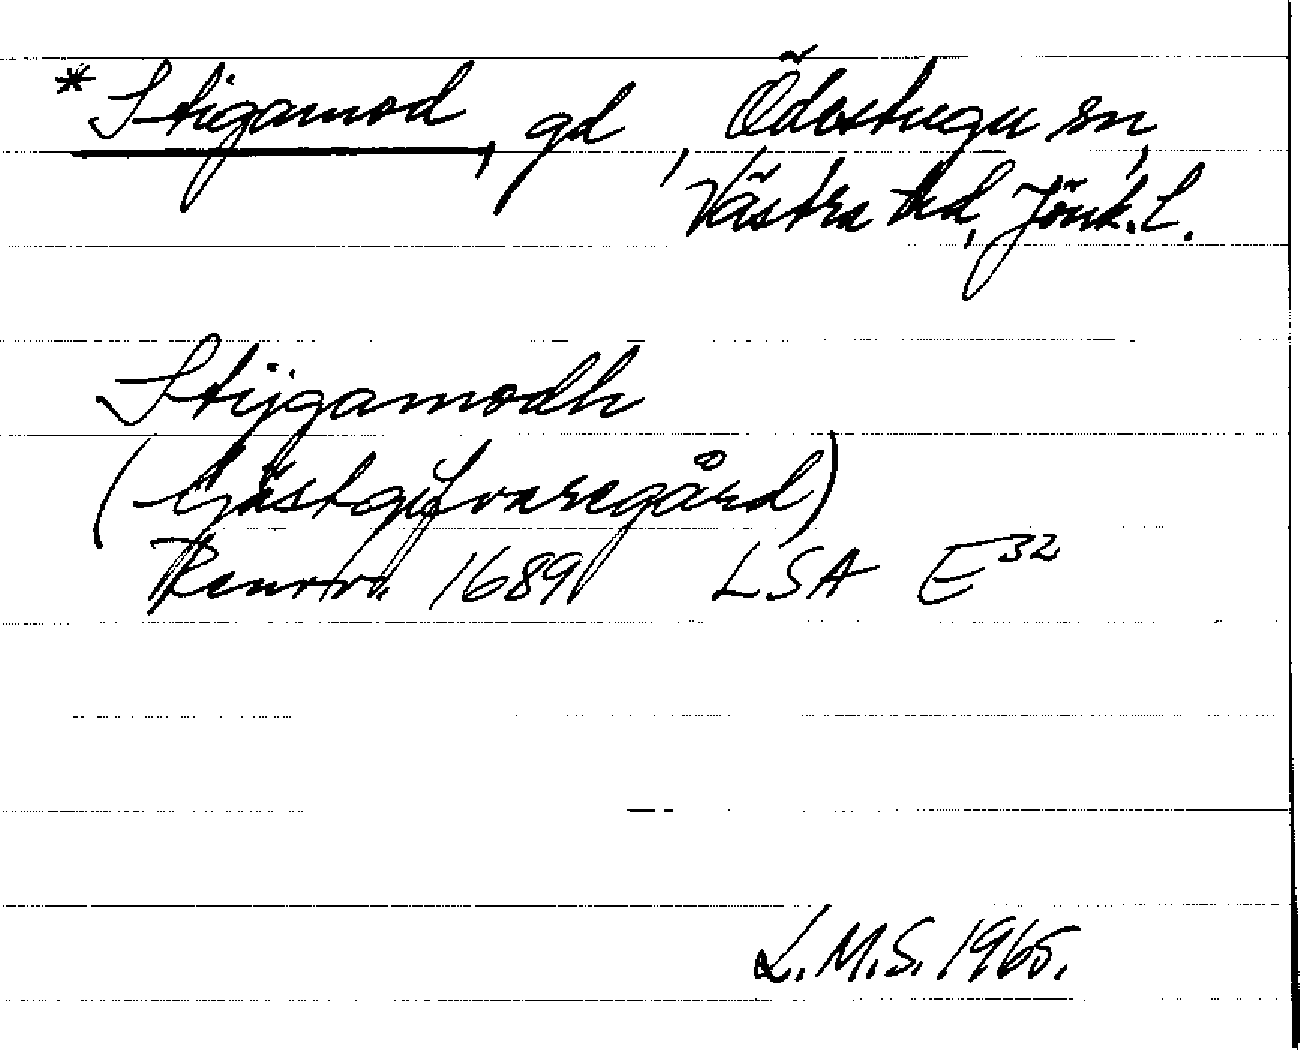 *Stigamod, gd, Ödestugu sn,
Västra hd, Jönk. L.
Stijgamodh
(Gästgifvaregård)
Renov. 1689 LSA E32
L.M.S. 1965.